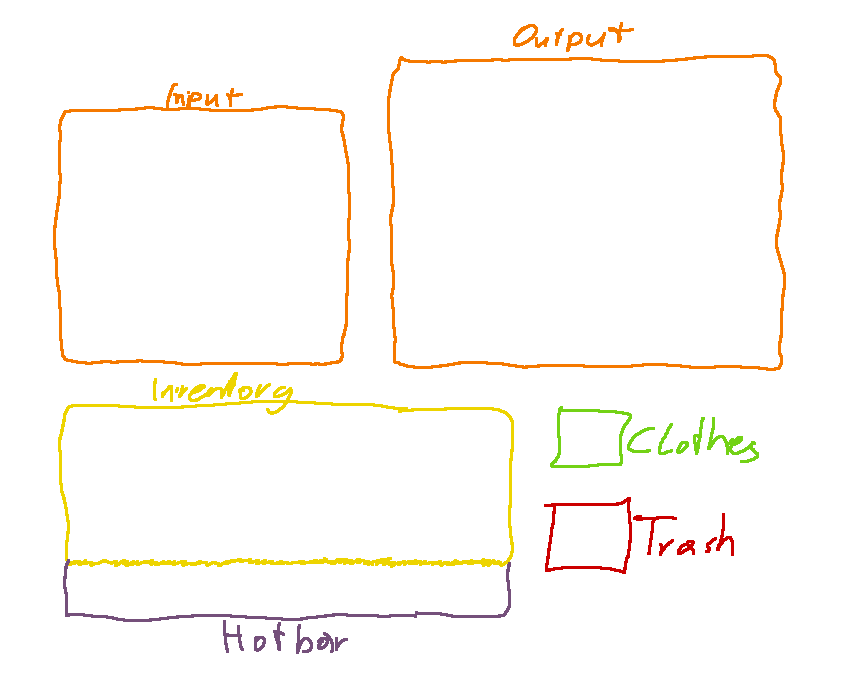 Output
Input
Inventory
Clothes
Trash
Hotbar